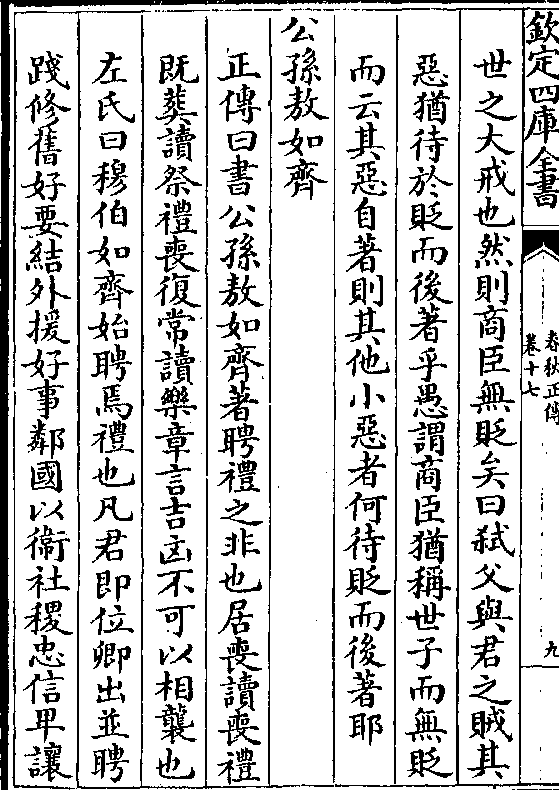 欽定四庫全書
春秋正傳
卷十七
九
世之大戒也然則商臣無貶矣曰弑父與君之賊其
惡猶待於貶而後著乎愚謂商臣猶稱世子而無貶
而云其惡自著則其他小惡者何待貶而後著耶
公孫敖如齊
正傳曰書公孫敖如齊著聘禮之非也居喪讀喪禮
既葬讀祭禮喪復常讀樂章言吉凶不可以相襲也
左氏曰穆伯如齊始聘焉禮也凡君即位卿出並聘
踐修舊好要結外援好事鄰國以衛社稷忠信卑讓